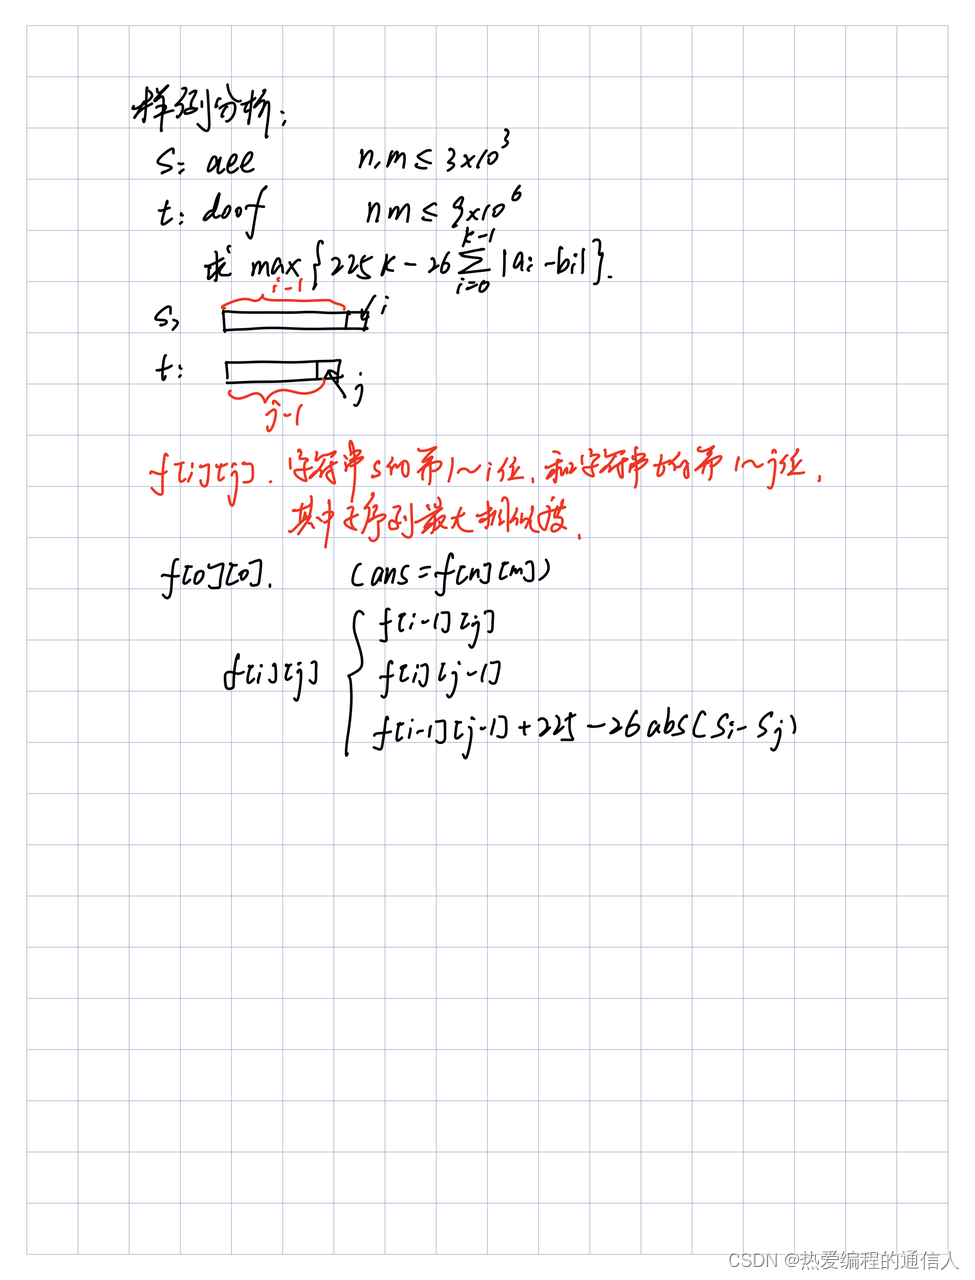 样例分析:
s: aee n,m ≤ 3×10³
t: doof nm ≤ 9×10⁶
求 max{225k - 26 ∑_{i=0}^{k-1} |ai - bi|}.
i-1
s, i
t: j
j-1
f[i][j]. 字符串s的第1~i位, 和字符串t的第1~j位,
其中子序列最大相似度.
f[0][0]. (ans=f[n][m])
f[i-1][j]
f[i][j] { f[i][j-1]
f[i-1][j-1]+225-26abs(Si-Sj)
CSDN @热爱编程的通信人